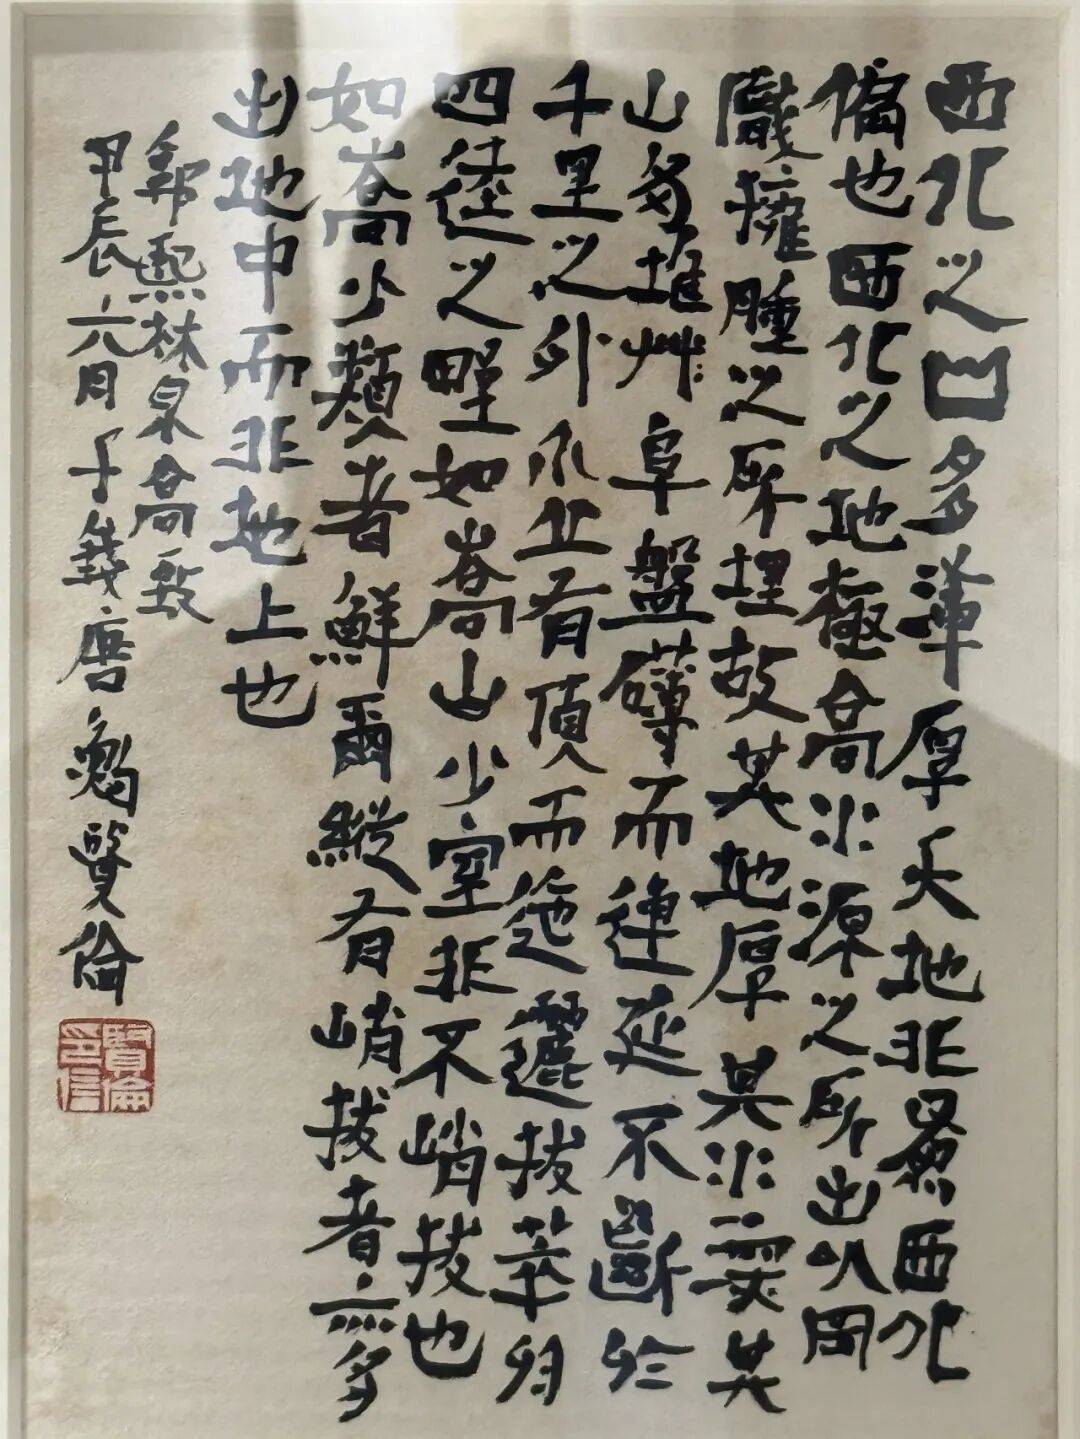 西北之山多渾厚天地非爲西北
偏也西北之地極高水源之所出以岡
隴擁腫之所埋故其地厚其水深其
山多堆艸阜盤礴而連延不斷於
千里之外介丘有頂而迤邐拔萃於
四逵之野如嵩山少室非不峭拔也
如嵩少類者鮮爾縱有峭拔者亦多
出地中而非地上也
郭熙林泉高致
甲辰六月于錢唐鮑賢倫
賢倫印信